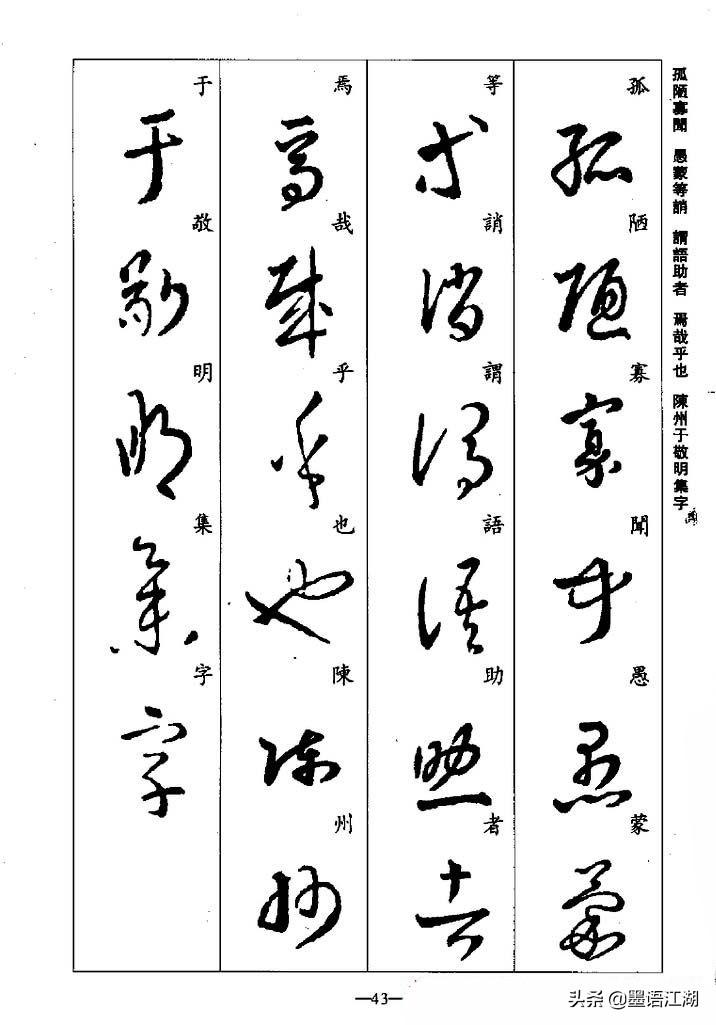 孤陋寡聞 愚蒙等誚 謂語助者 焉哉乎也 陳州于敬明集字
孤陋寡聞愚蒙
等誚謂語助者
焉哉乎也陳州
于敬明集字
—43—
头条 @墨语江湖